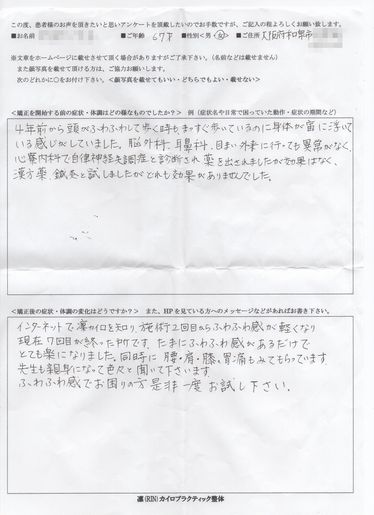 この度、患者様のお声を頂きたいと思いアンケートを頂戴したいのでお手数ですが、ご記入の程よろしくお願い致します。
■お名前 ■ご年齢 67才 ■性別＜男・女＞ ■ご住所 大阪府和泉市
※文章をホームページに載せさせて頂く場合がありますがご了承下さい。（名前などは載せません）
また顔写真を載せて頂ける方は、ご協力お願いします。
次のどれかに○をお付け下さい。＜顔写真を載せてもいい・どちらでもよい・載せない＞
＜矯正を開始する前の症状・体調はどの様なものでしたか？＞ 例（症状名や日常で困っていた動作・症状の期間など）
4年前から頭がふわふわして歩く時もまっすぐ歩いているのに身体が宙に浮いて
いる感じがしていました。脳外科、耳鼻科、目まい外来に行っても異常がなく、
心療内科で自律神経失調症と診断され薬を出されましたが効果はなく、
漢方薬 鍼灸と試しましたがどれも効果がありませんでした。
＜矯正後の症状・体調の変化はどうですか？＞ また、HPを見ている方へのメッセージなどがあればお書き下さい。
インターネットで凛カイロを知り、施術2回目からふわふわ感が軽くなり
現在7回目が終った所です。たまにふわふわ感があるだけで
とても楽になりました。同時に 腰・肩・膝、胃痛もみてもらっています。
先生も親身になって色々と聞いて下さいます。
ふわふわ感でお困りの方是非一度お試し下さい。
凛(RIN)カイロプラクティック整体